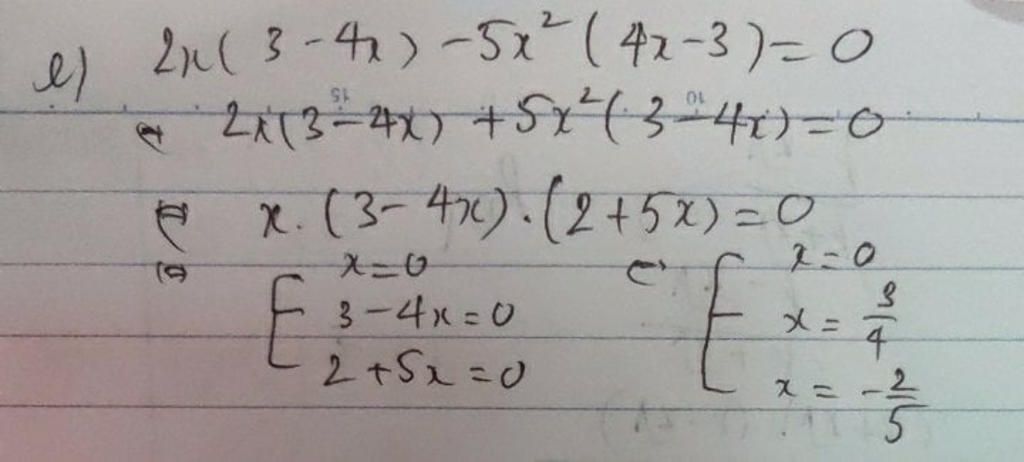 e) 2x(3-4x) -5x²(4x-3)=0
⇔ 2x(3-4x) +5x²(3-4x)=0
⇔ x.(3-4x).(2+5x)=0
⇔ [ x=0 ⇔ [ x=0
3-4x=0 x=3/4
2+5x=0 x=-2/5